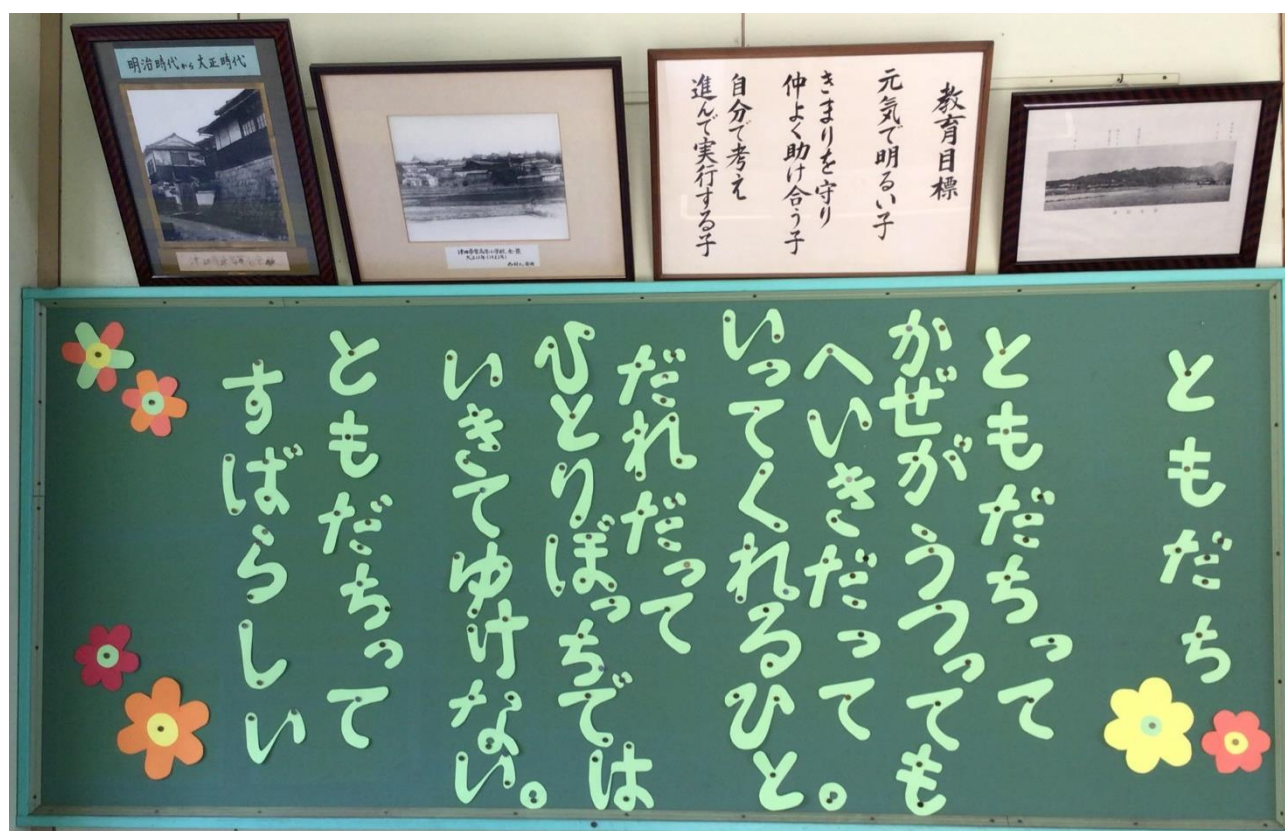 明治時代から大正時代
教育目標
元気で明るい子
きまりを守り
仲よく助け合う子
自分で考え
進んで実行する子
ともだち
ともだちって
かぜがうつっても
へいきだって
いってくれるひと。
だれだって
ひとりぼっちでは
いきてゆけない。
ともだちって
すばらしい